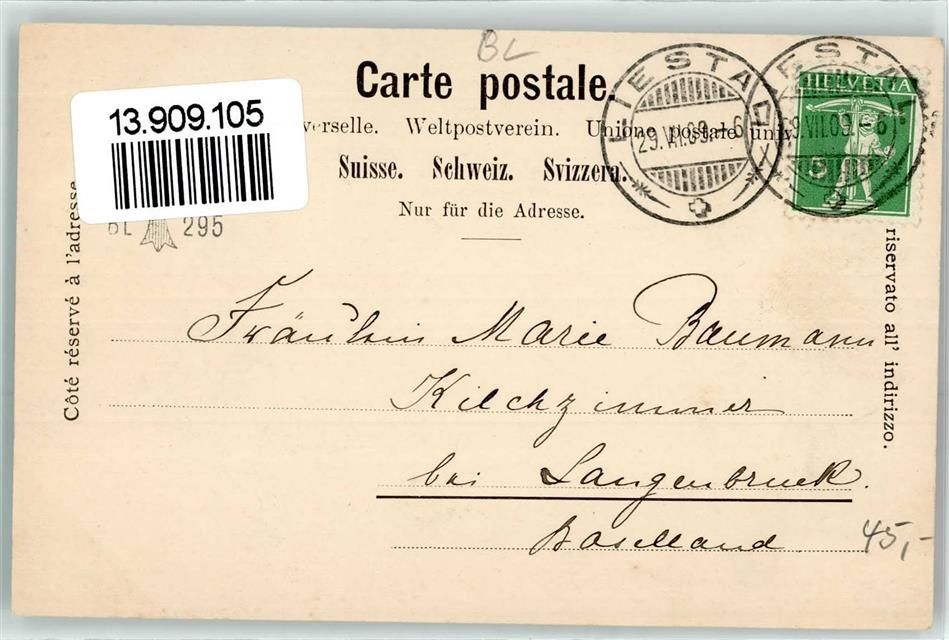 BL
Carte postale.
13.909.105
verselle. Weltpostverein. Unione postale univ.
Suisse. Schweiz. Svizzera.
Nur für die Adresse.
LIESTAL
29.VII.09.-6
LIESTAL
29.VII.09.-6
HELVETIA
5
BL 295
Côté réservé à l'adresse
riservato all' indirizzo.
Fräulein Marie Baumann
Kilchzimmer
bei Langenbruck.
Baselland.
45,-